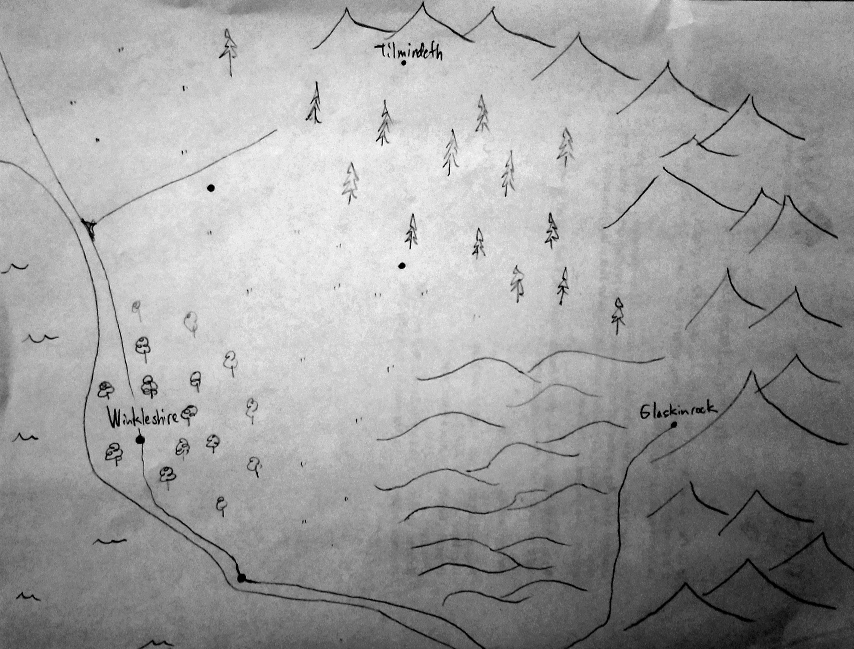 Tilmirdeth
Winkleshire
Glaskinrock